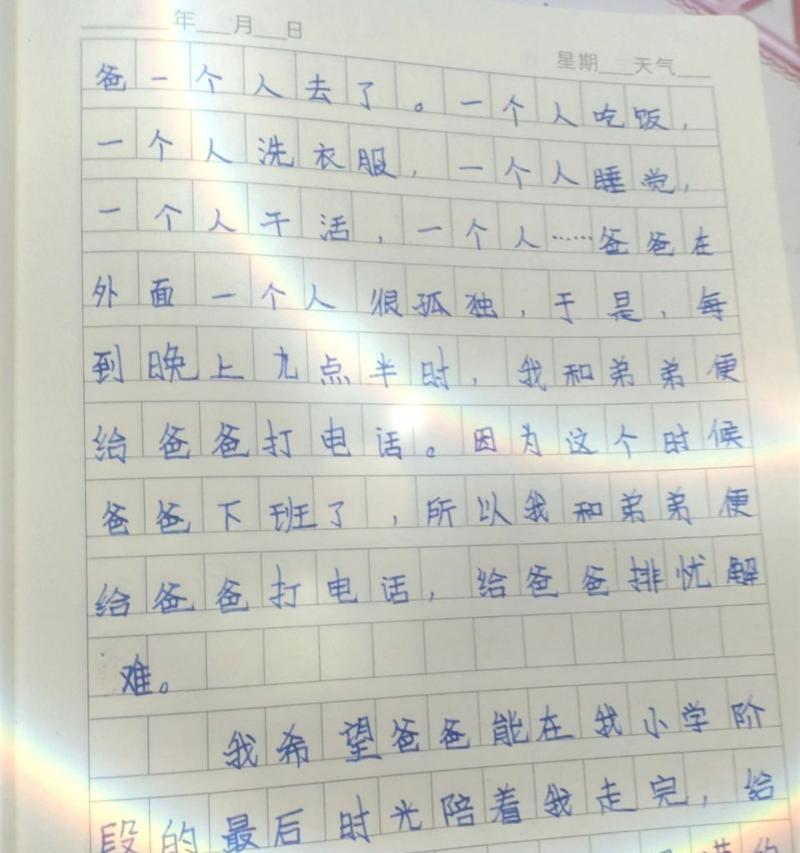 年 月 日
星期 天气
爸一个人去了。一个人吃饭，
一个人洗衣服，一个人睡觉，
一个人干活，一个人……爸爸在
外面一个人很孤独，于是，每
到晚上九点半时，我和弟弟便
给爸爸打电话。因为这个时候
爸爸下班了，所以我和弟弟便
给爸爸打电话，给爸爸排忧解
难。
我希望爸爸能在我小学阶
段的最后时光陪着我走完，给